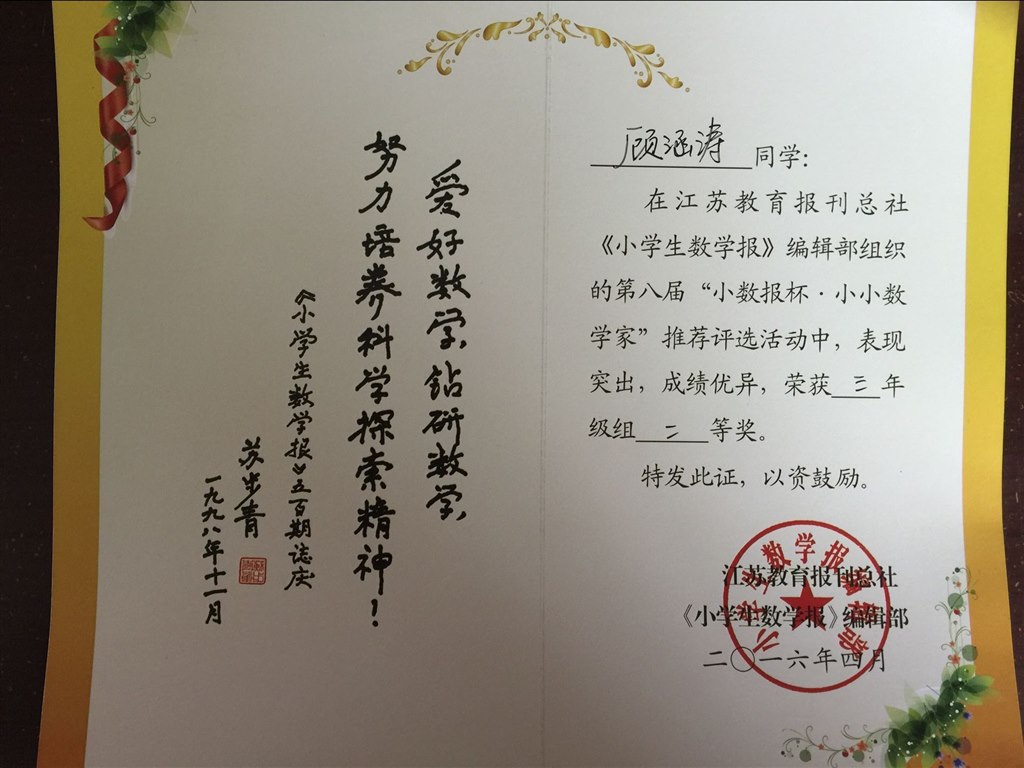 爱好数学,钻研数学,
努力培养科学探索精神!
《小学生数学报》五百期志庆
苏步青
一九九八年十一月
顾涵涛同学:
在江苏教育报刊总社
《小学生数学报》编辑部组织
的第八届“小数报杯·小小数
学家”推荐评选活动中,表现
突出,成绩优异,荣获三年
级组二等奖。
特发此证,以资鼓励。
江苏教育报刊总社
《小学生数学报》编辑部
二〇一六年四月
小学生数学报编辑部